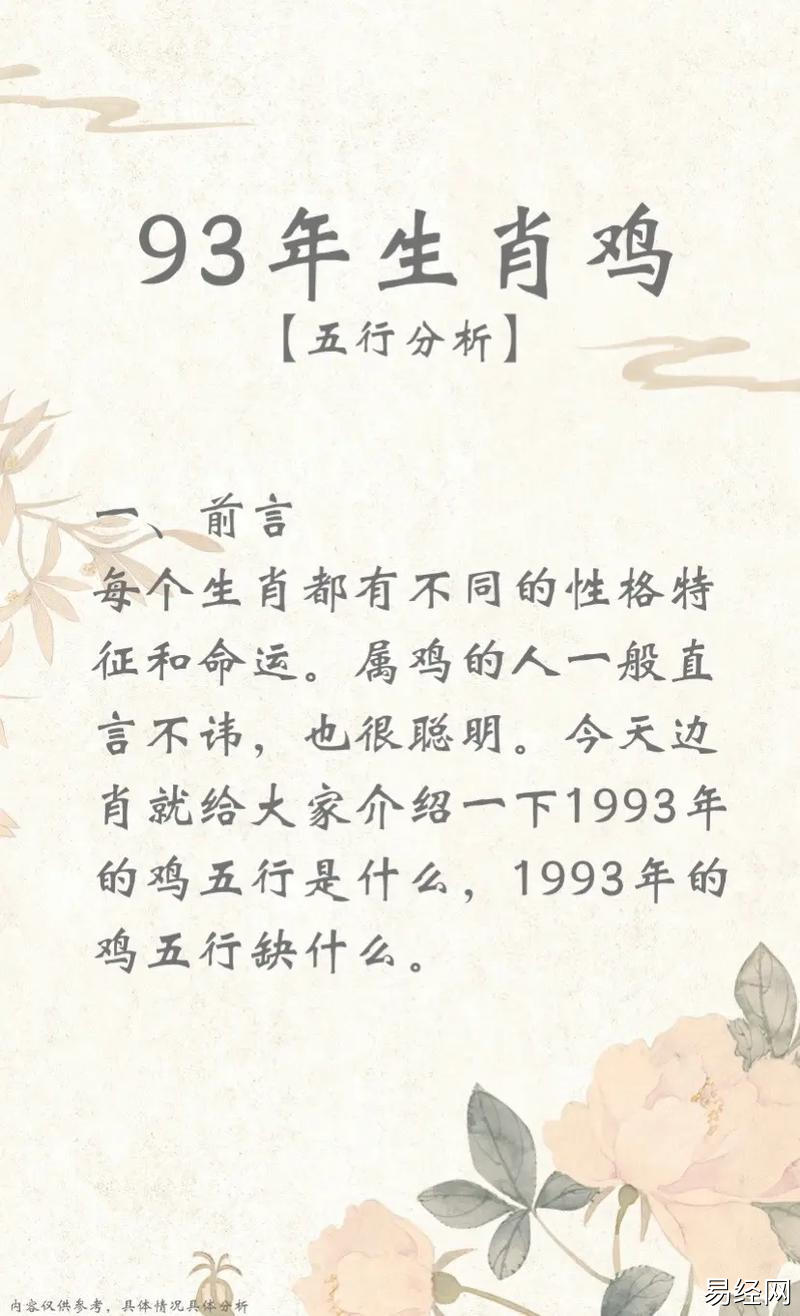 93年生肖鸡
【五行分析】
一、前言
每个生肖都有不同的性格特
征和命运。属鸡的人一般直
言不讳，也很聪明。今天边
肖就给大家介绍一下1993年
的鸡五行是什么，1993年的
鸡五行缺什么。
内容仅供参考，具体情况具体分析
易经网